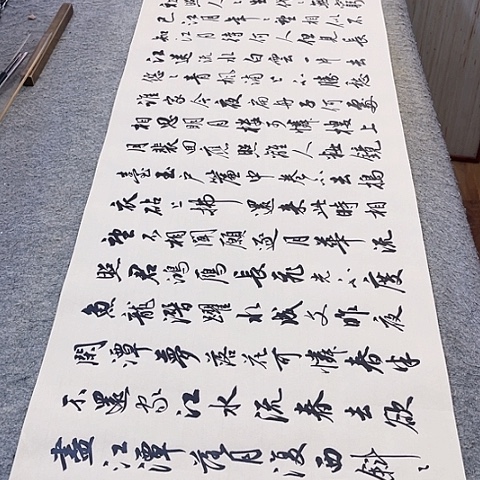 已江月年々望相似不
知江月待何人但見長
江送流水白雲一片去
悠々青楓浦上不勝愁
誰家今夜扁舟子何處
相思明月樓可憐樓上
月裴回應照離人妝鏡
臺玉戶簾中卷不去搗
衣砧上拂還來此時相
望不相聞願逐月華流
照君鴻雁長飛光不度
魚龍潛躍水成文昨夜
閑潭夢落花可憐春半
不還家江水流春去欲
盡江潭落月復西斜々